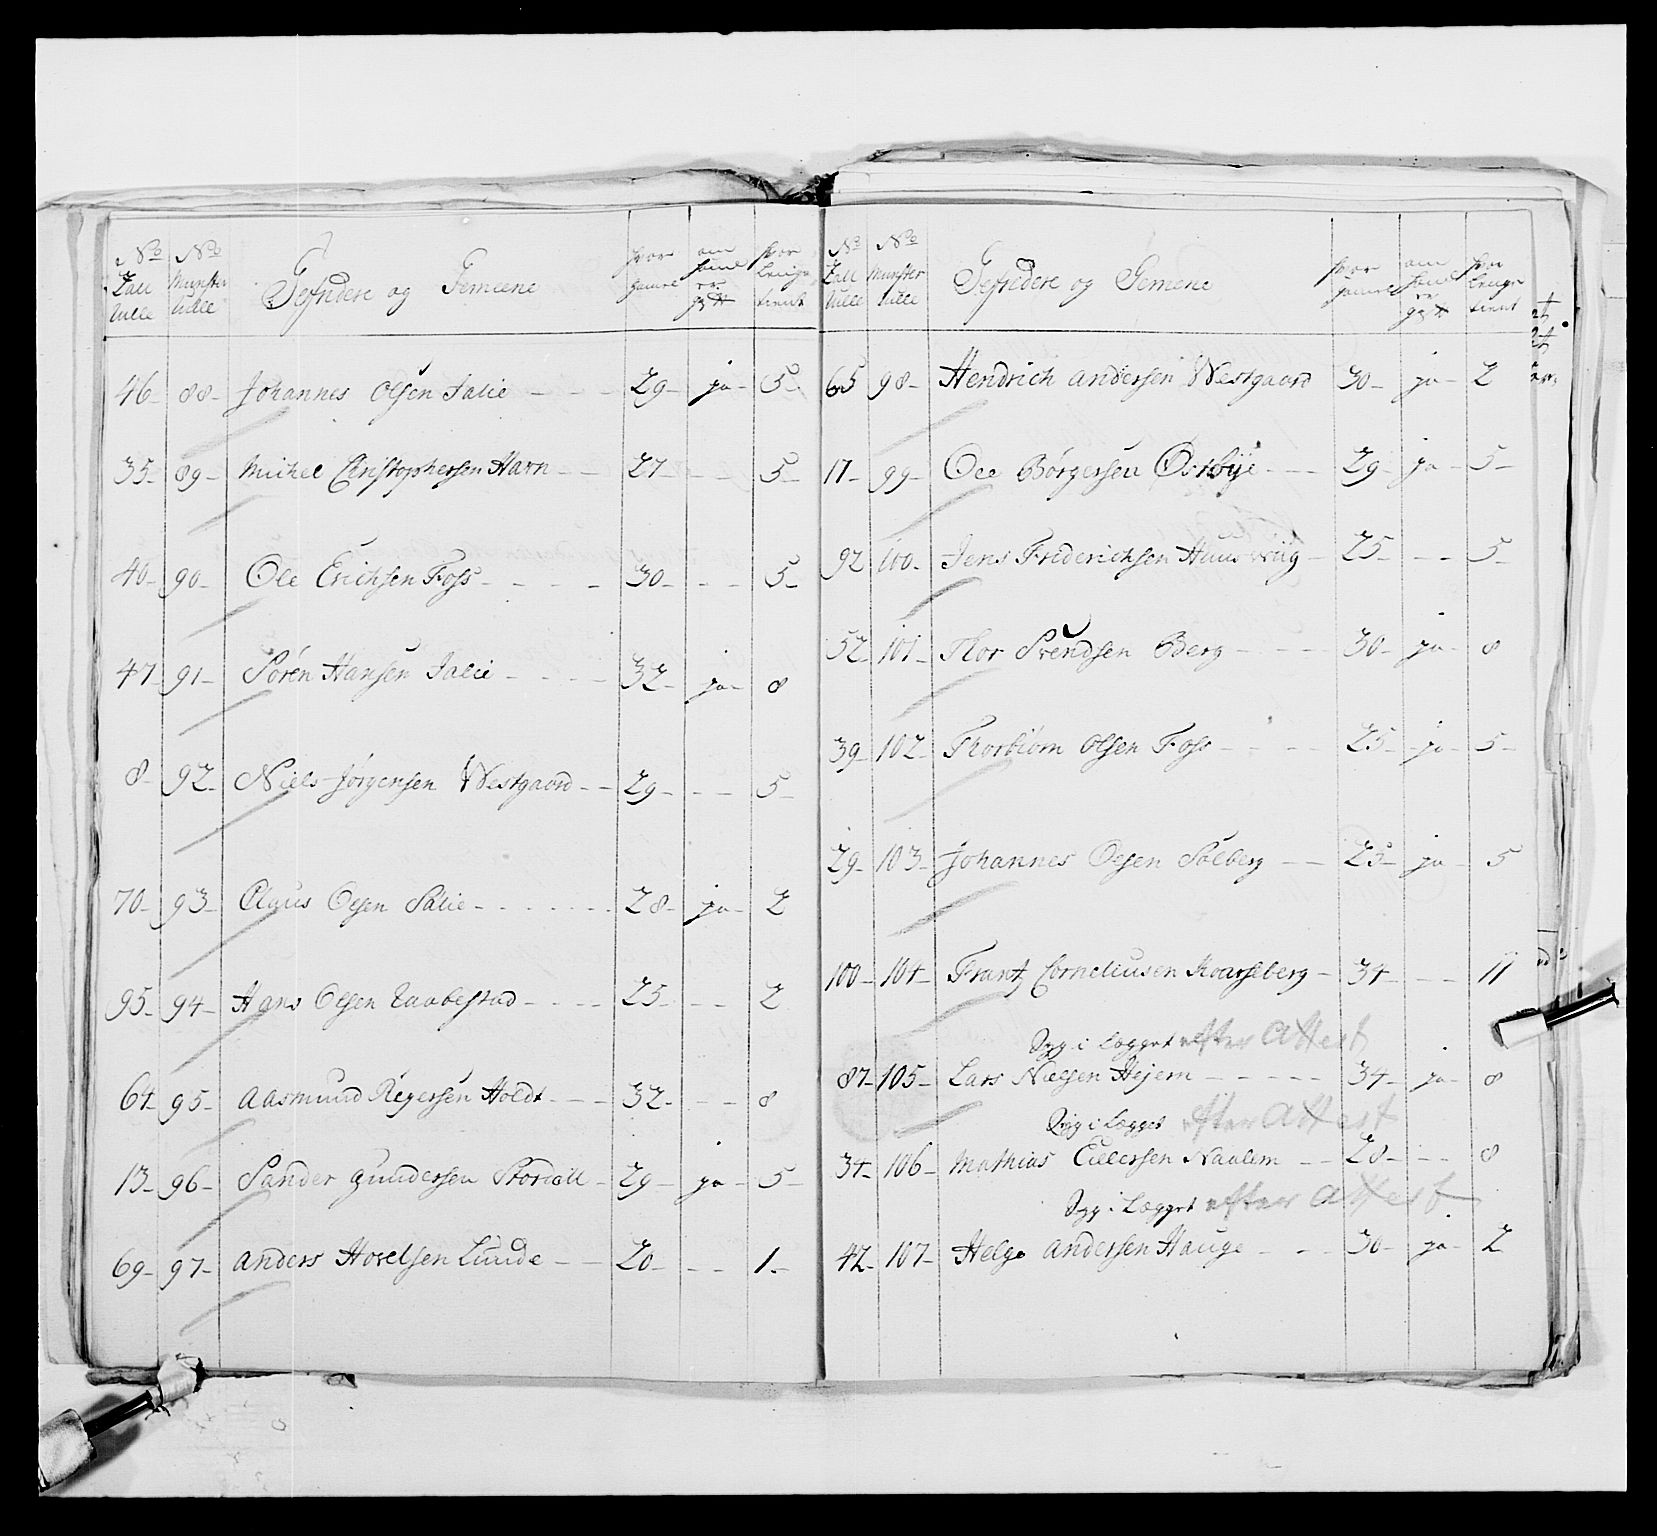 No Tall Rulle | No Munster Rulle | Gefridere og Gemeene | hvor gamel | om hand er gift | hvor lenge tient
46- 88- Johannes Olsen Salie - - - 29- ja- 5-
35- 89- Michel Christophersen Harn - - 27- - - 5-
40- 90- Ole Erichsen Foss - - - - 30- - - 5-
47- 91- Sören Hansen Salie - - - - 32- ja- 8
8- 92- Niels Jörgensen Westgaard - - 29- - - 5-
70- 93- Claus Olsen Salie - - - - - 28- ja- 2
95- 94- Hans Olsen Raabestad - - - - 25- - - 2
64- 95- Aasmund Regersen Holdt - - - 32- - - 8
13- 96- Sander Gundersen Stordall - 29- ja- 5-
69- 97- Anders Hovelsen Lunde - - 20- - - 1-
No Tall Rulle | No Munster Rulle | Gefridere og Gemene | hvor gamel | om hand er gift | hvor lenge tient
65 98- Hendrich Andersen Westgaard 30- ja- 2
17- 99- Ole Börgersen Östbÿe - - - 29- ja- 5-
92 100- Jens Friderichsen Huusvviig - 25- - - 5-
52- 101- Thor Svendsen Berg - - - - 30- ja- 8
39- 102- Thorbiörn Olsen Foss - - - - 25- ja- 5-
29- 103- Johannes Olsen Solberg - - 25- ja- 5
100- 104- Frantz Corneliusen Skoarseberg - 34- - - 11
Syg i Lægget efter Attest
87- 105- Lars Nielsen Hejem - - - - - 34- ja- 8
Syg i Lægget efter Attest
34- 106- Mathias Ellersen Naalem - - 28- - - 8
Syg i Lægget efter Attest
42- 107- Helge Andersen Hauge - - - 30- ja- 2